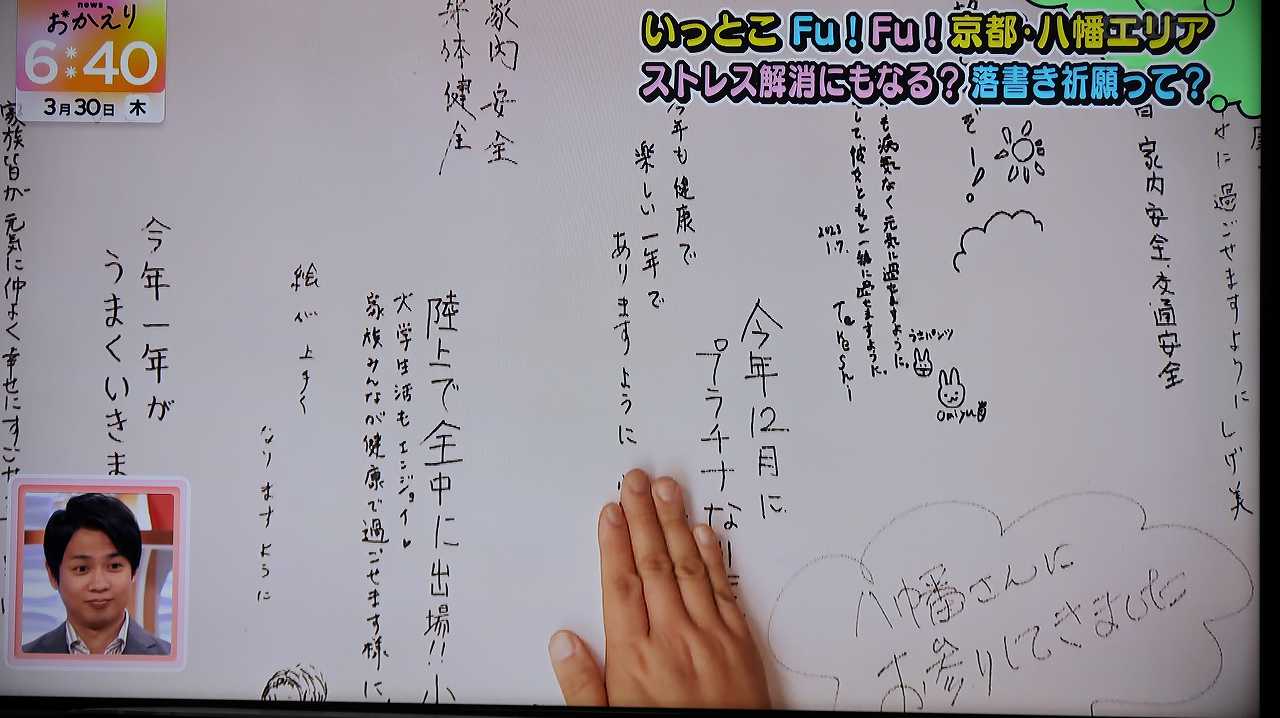 news
おかえり
6:40
3月30日 木
いっとこ Fu!Fu!京都・八幡エリア
ストレス解消にもなる?落書き祈願って?
せに過ごせますように しげ美
家内安全、交通安全
ぞー!。
も病気なく元気に過せますように。
して、彼女ともっと一緒に過せますように。
2023
1.7.
うさパンツ
omiyu
今年12月に
プラチナな
今年も健康で
楽しい一年で
ありますように
家内安全
身体健全
陸上で全中に出場!!
大学生活もエンジョイ♥
家族みんなが健康で過ごせます様に
絵が上手く
なりますように
今年一年が
うまくいきま
家族皆が元気に仲よく幸せにすごせ
八幡さんに
お参りしてきました